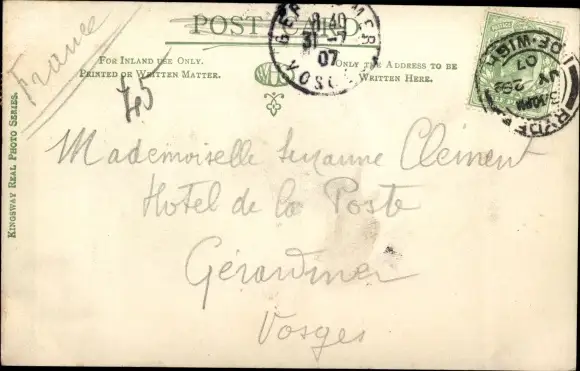 POST CARD
FOR INLAND USE ONLY.
PRINTED OR WRITTEN MATTER.
ONLY THE ADDRESS TO BE
WRITTEN HERE.
KINGSWAY REAL PHOTO SERIES.
France
45
GERARDMER
18 40
31-7
07
VOSGES
RYDE
I.OF.WIGHT
JY 29
07
Mademoiselle Suzanne Clément
Hotel de la Poste
Gérardmer
Vosges